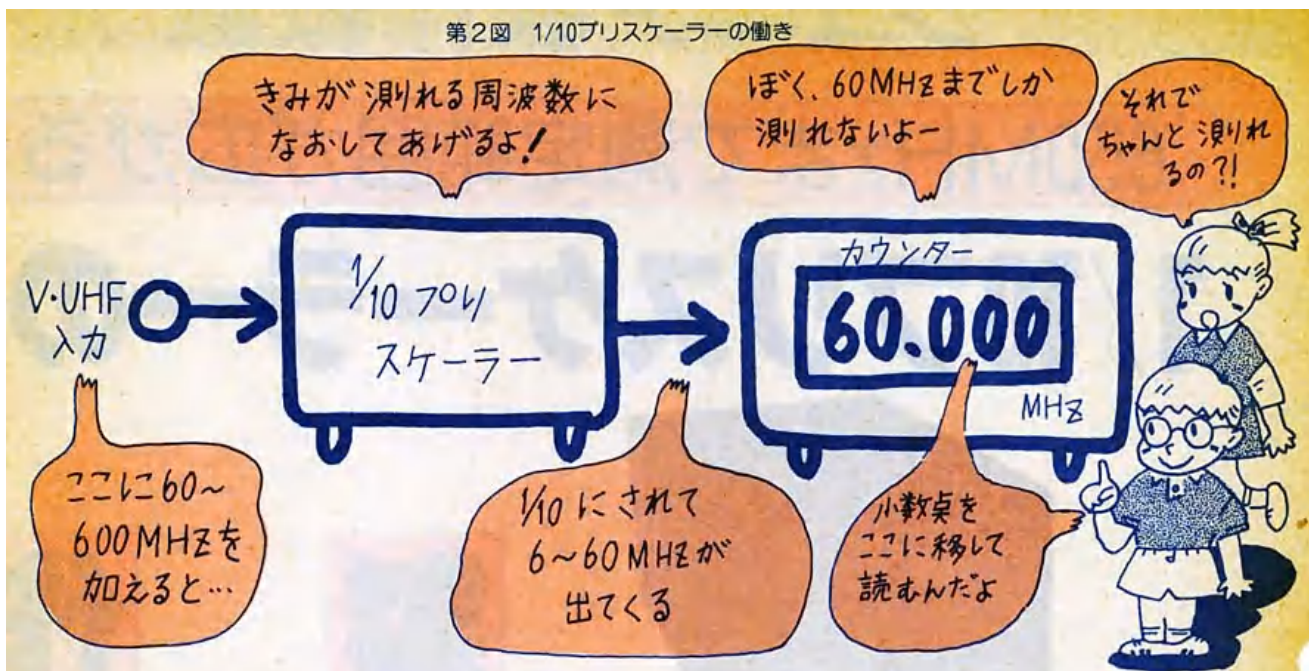 第2図 1/10プリスケーラーの働き
きみが測れる周波数に
なおしてあげるよ!
ぼく、60MHzまでしか
測れないよー
それで
ちゃんと測れ
るの?!
V・UHF
入力
1/10プリ
スケーラー
カウンター
60.000
MHz
ここに60～
600MHzを
加えると…
1/10にされて
6～60MHzが
出てくる
小数点を
ここに移して
読むんだよ